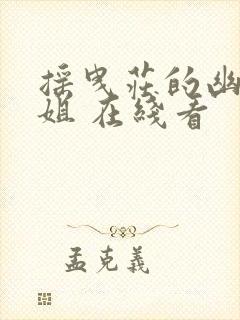 揺曳莊的幽
姐 在綫看
孟克義